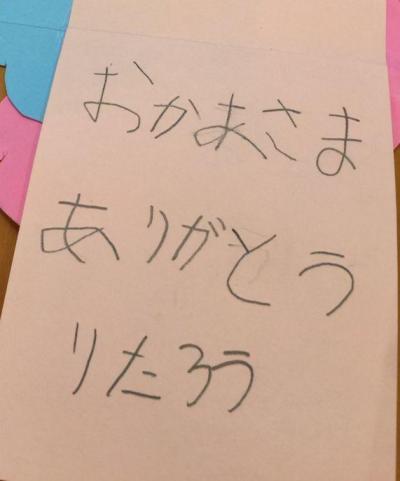 おかあさま
ありがとう
りたろう